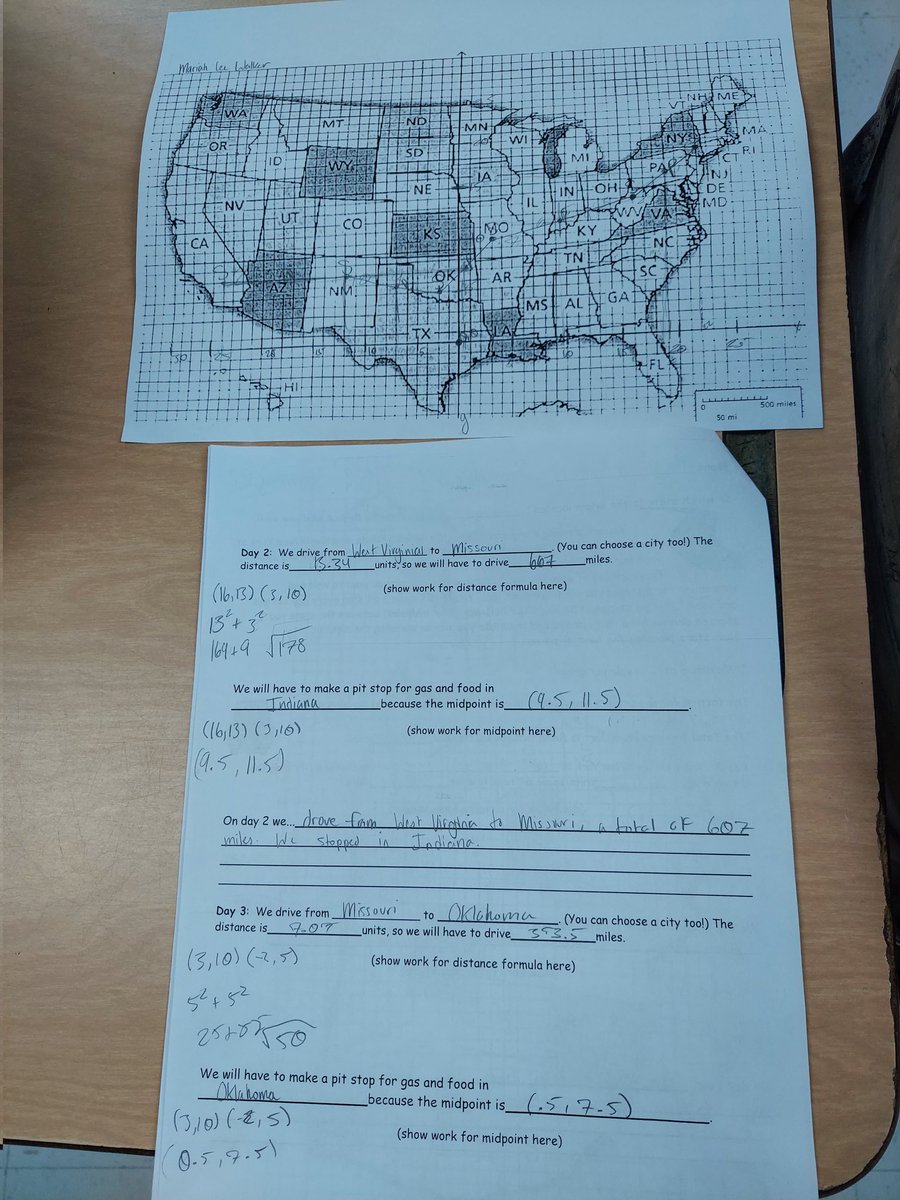 Mariah Lee Walker
WA MT ND MN VT NH ME
OR ID WY SD WI MI NY MA
CT RI
NV UT CO NE IA IL IN OH PA NJ
DE
MD
CA KS MO KY WV VA
AZ NM OK AR TN NC
SC
TX LA MS AL GA
FL
HI
x
y
0 500 miles
50 mi
Day 2: We drive from West Virginial to Missouri. (You can choose a city too!) The
distance is 13.34 units, so we will have to drive 607 miles.
(16,13) (3,10) (show work for distance formula here)
13² + 3²
169+9 √178
We will have to make a pit stop for gas and food in
Indiana because the midpoint is (9.5, 11.5).
(16,13) (3,10) (show work for midpoint here)
(9.5, 11.5)
On day 2 we... drove from West Virginia to Missouri, a total of 607
miles. We stopped in Indiana.
Day 3: We drive from Missouri to Oklahoma. (You can choose a city too!) The
distance is 7.07 units, so we will have to drive 353.5 miles.
(3,10) (-2,5) (show work for distance formula here)
5² + 5²
25+25 √50
We will have to make a pit stop for gas and food in
Oklahoma because the midpoint is (.5, 7.5).
(3,10) (-2,5)
(show work for midpoint here)
(0.5, 7.5)